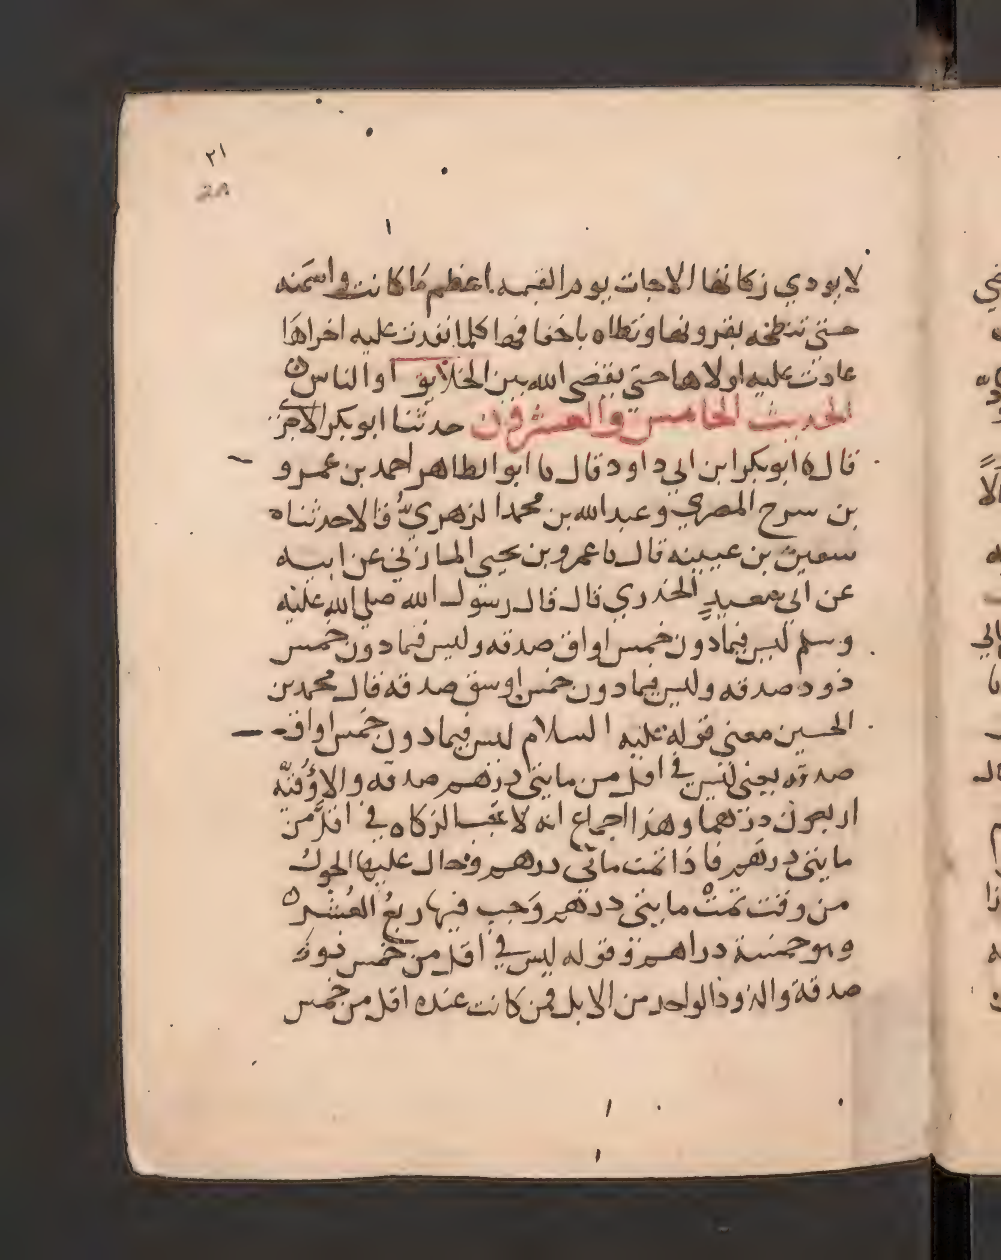 ٢١
لا يودي زكاتها الا جات يوم القيمه اعظم ما كانت واسمنه
حتى تنطحه بقرونها وتطاه باخفافها كلما نفدت عليه اخراها
عادت عليه اولاها حتى يقضى الله بين الخلايق او الناس
الحديث الخامس والعشرون حدثنا ابو بكر الاجري
قال ابو بكر ابن ابي داود قال نا ابو الطاهر احمد بن عمرو
بن سرح المصري وعبد الله بن محمد الزهري قالا حدثنا
سفين بن عيينه قال نا عمرو بن يحيى المازني عن ابيه
عن ابي سعيد الخدري قال قال رسول الله صلى الله عليه
وسلم ليس فيما دون خمس اواق صدقه وليس فيما دون خمس
ذود صدقه وليس فيما دون خمس اوسق صدقه قال محمد بن
الحسين معنى قوله عليه السلام ليس فيما دون خمس اواق
صدقه يعني ليس في اقل من مايتي درهم صدقه والاوقيه
اربعون درهما وهذا اجماع انه لا تجب الزكاه في اقل من
مايتي درهم فاذا تمت مائتي درهم وحال عليها الحول
من وقت تمت مايتي درهم وجب فيها ربع العشر
وهو خمسة دراهم وقوله ليس في اقل من خمس ذود
صدقة والذود الواحد من الابل فمن كانت عنده اقل من خمس